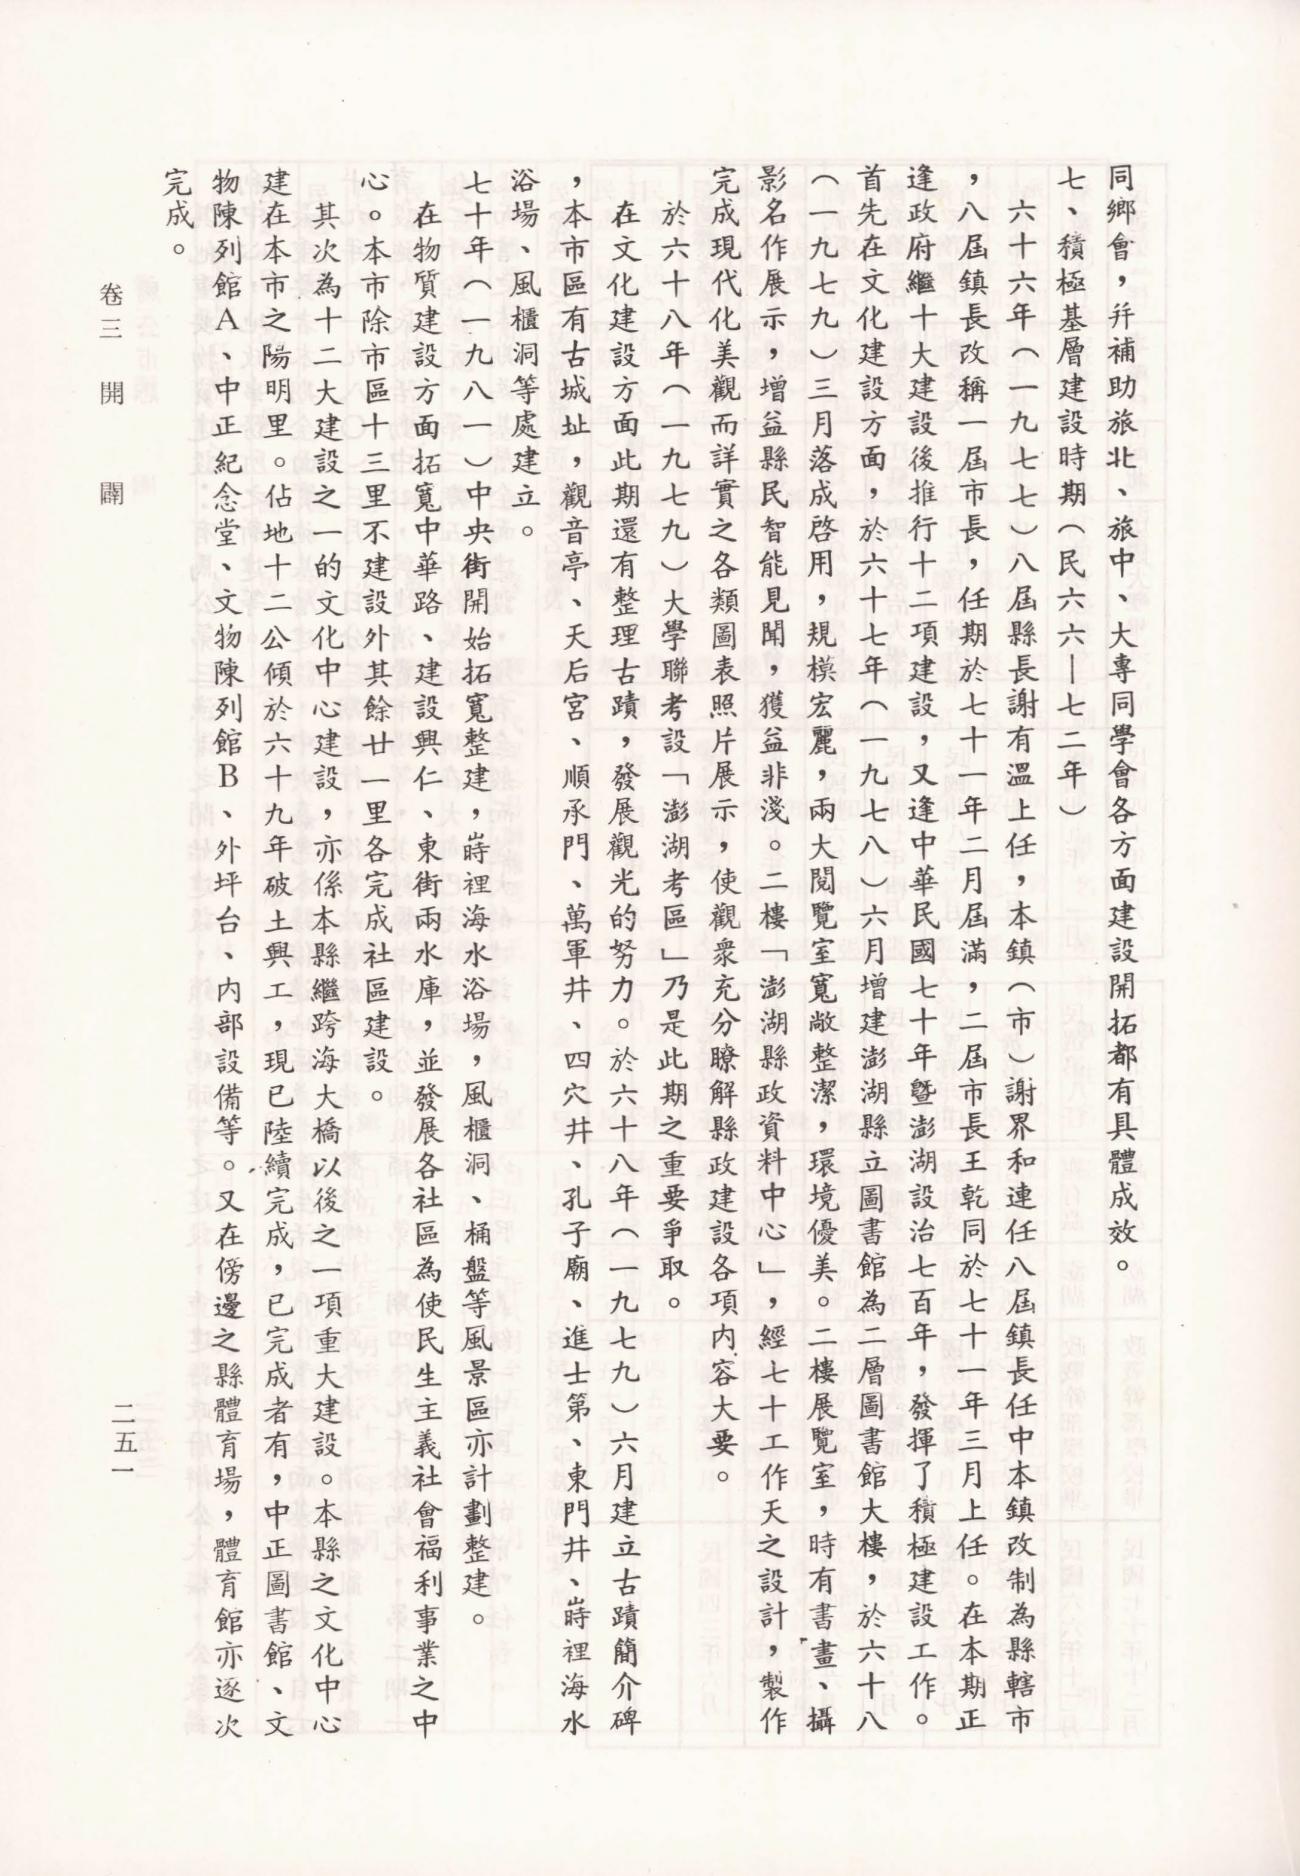 同鄉會，幷補助旅北、旅中、大專同學會各方面建設開拓都有具體成效。
七、積極基層建設時期（民六六—七二年）
六十六年（一九七七）八屆縣長謝有溫上任，本鎮（市）謝界和連任八屆鎮長任中本鎮改制為縣轄市
，八屆鎮長改稱一屆市長，任期於七十一年二月屆滿，二屆市長王乾同於七十一年三月上任。在本期正
逢政府繼十大建設後推行十二項建設，又逢中華民國七十年暨澎湖設治七百年，發揮了積極建設工作。
首先在文化建設方面，於六十七年（一九七八）六月增建澎湖縣立圖書館為二層圖書館大樓，於六十八
（一九七九）三月落成啓用，規模宏麗，兩大閱覽室寬敞整潔，環境優美。二樓展覽室，時有書畫、攝
影名作展示，增益縣民智能見聞，獲益非淺。二樓「澎湖縣政資料中心」，經七十工作天之設計，製作
完成現代化美觀而詳實之各類圖表照片展示，使觀衆充分瞭解縣政建設各項內容大要。
於六十八年（一九七九）大學聯考設「澎湖考區」乃是此期之重要爭取。
在文化建設方面此期還有整理古蹟，發展觀光的努力。於六十八年（一九七九）六月建立古蹟簡介碑
，本市區有古城址，觀音亭、天后宮、順承門、萬軍井、四穴井、孔子廟、進士第、東門井、嵵裡海水
浴場、風櫃洞等處建立。
七十年（一九八一）中央街開始拓寬整建，嵵裡海水浴場，風櫃洞、桶盤等風景區亦計劃整建。
在物質建設方面拓寬中華路、建設興仁、東街兩水庫，並發展各社區為使民生主義社會福利事業之中
心。本市除市區十三里不建設外其餘廿一里各完成社區建設。
其次為十二大建設之一的文化中心建設，亦係本縣繼跨海大橋以後之一項重大建設。本縣之文化中心
建在本市之陽明里。佔地十二公傾於六十九年破土興工，現已陸續完成，已完成者有，中正圖書館、文
物陳列館A、中正紀念堂、文物陳列館B、外坪台、內部設備等。又在傍邊之縣體育場，體育館亦逐次
完成。
卷三　開　闢
二五一